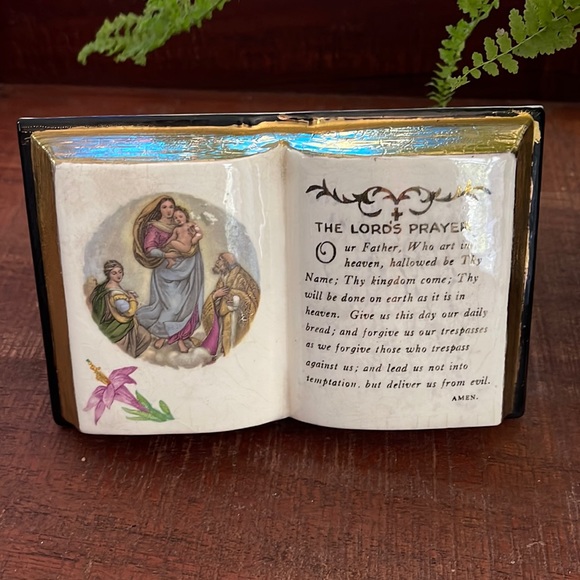 THE LORD'S PRAYER
Our Father, Who art in
heaven, hallowed be Thy
Name; Thy kingdom come; Thy
will be done on earth as it is in
heaven. Give us this day our daily
bread; and forgive us our trespasses
as we forgive those who trespass
against us; and lead us not into
temptation, but deliver us from evil.
AMEN.